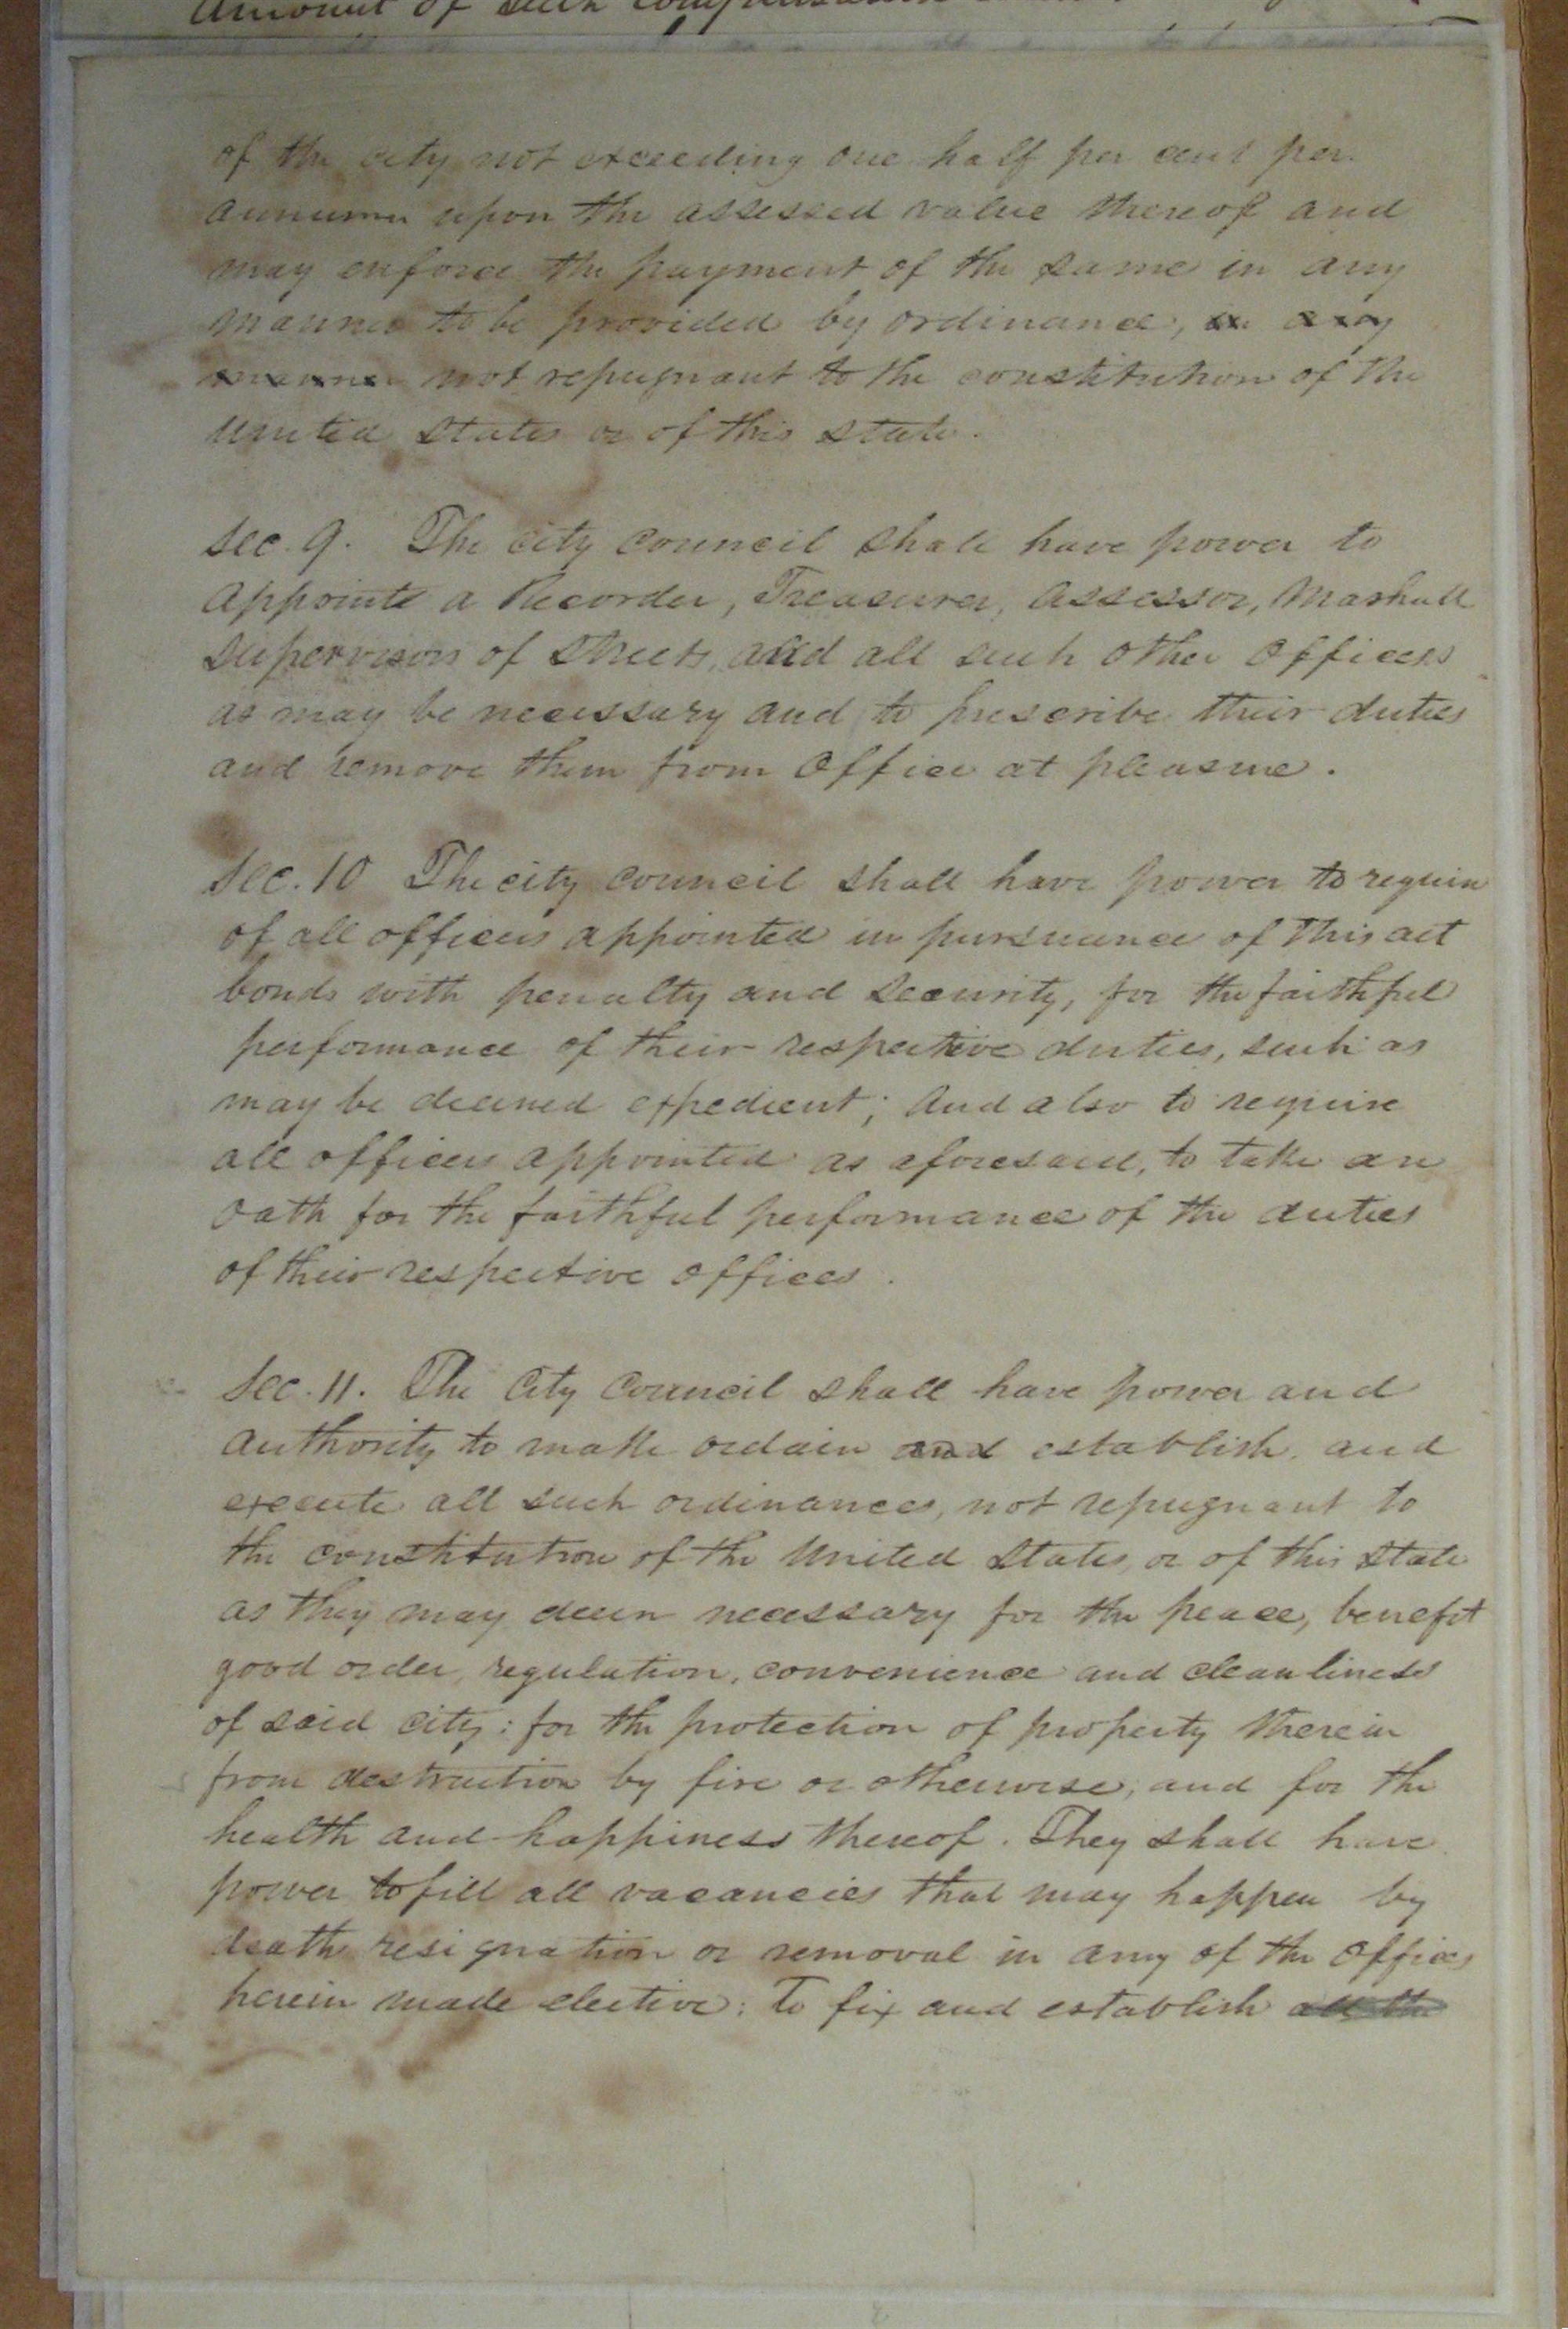 Amount of such
of the city not exceeding one half per cent per.
annumn upon the assessed value thereof and
may enforce the payment of the same in any
manner to be provided by ordinance, in any
manner not repugnant to the constitution of the
United States or of this state.
Sec. 9. The city council shall have power to
appointe a Recorder, Treasurer, assessor, Marshall
Supervisors of Streets, and all such other officers
as may be necessary and to prescribe their duties
and remove them from Office at pleasure.
Sec. 10 The city council shall have power to require
of all officers appointed in pursuance of this act
bonds with penalty and security, for the faithful
performance of their respective duties, such as
may be deemed expedient; And also to require
all officers appointed as aforesaid, to take an
oath for the faithful performance of the duties
of their respective offices.
Sec. 11. The City Council shall have power and
authority to make ordain and establish, and
execute all such ordinances, not repugnant to
the constitution of the United States, or of this State
as they may deem necessary for the peace, benefit
good order, regulation, convenience and cleanliness
of said city: for the protection of property therein
from destruction by fire or otherwise, and for the
health and happiness thereof. They shall have
power to fill all vacancies that may happen by
death resignation or removal in any of the Offices
herein made elective; To fix and establish all the